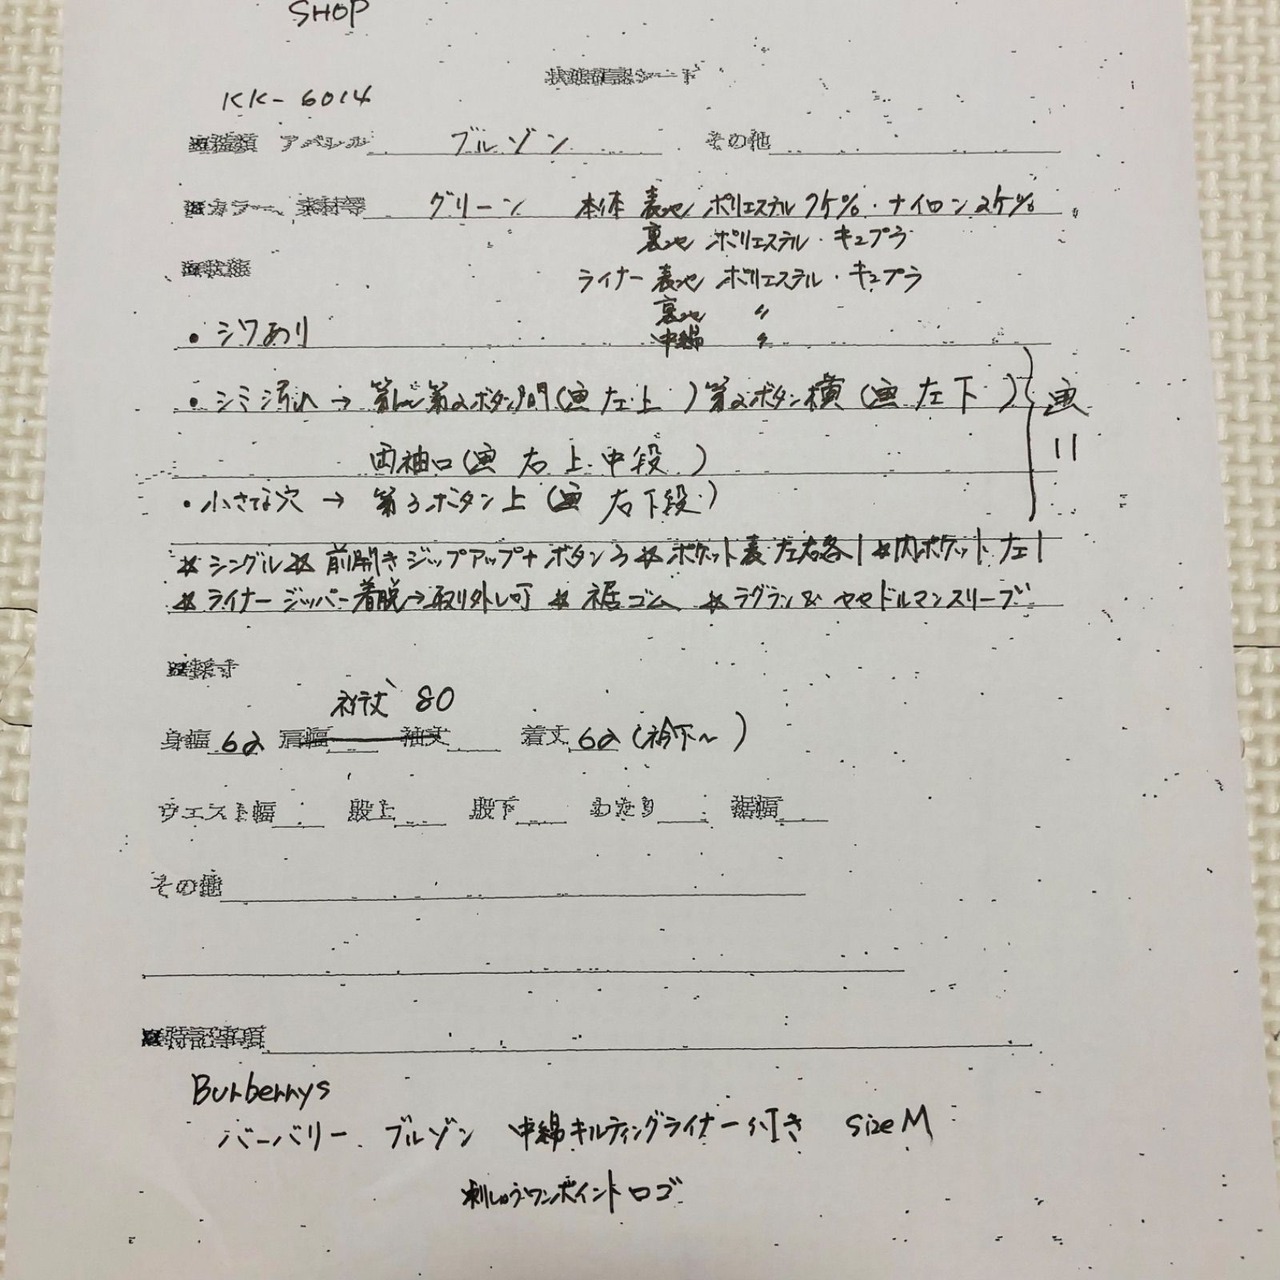 SHOP
状態確認シート
KK-6014
※種類 アパレル ブルゾン その他
※カラー、素材等 グリーン 本体 表地 ポリエステル75%・ナイロン25%
裏地 ポリエステル・キュプラ
※状態 ライナー 表地 ポリエステル・キュプラ
裏地 〃
・シワあり 中綿 〃
・シミ 汚れ → 第1~第2ボタン間(画 左上) 第2ボタン横(画 左下) 画11
両袖口(画 右上・中段)
・小さな穴 → 第3ボタン上(画 右下段)
*シングル *前開きジップアップ+ボタン3 *ポケット表左右各1 *内ポケット左1
*ライナージッパー着脱→取り外し可 *裾ゴム *ラグラン& ややドルマンスリーブ
※採寸
裄丈 80
身幅 62 肩幅 袖丈 着丈 62(衿下~)
ウエスト幅 股上 股下 わたり 裾幅
その他
※特記事項
Burberrys
バーバリー ブルゾン 中綿キルティングライナー付き size M
刺しゅうワンポイントロゴ